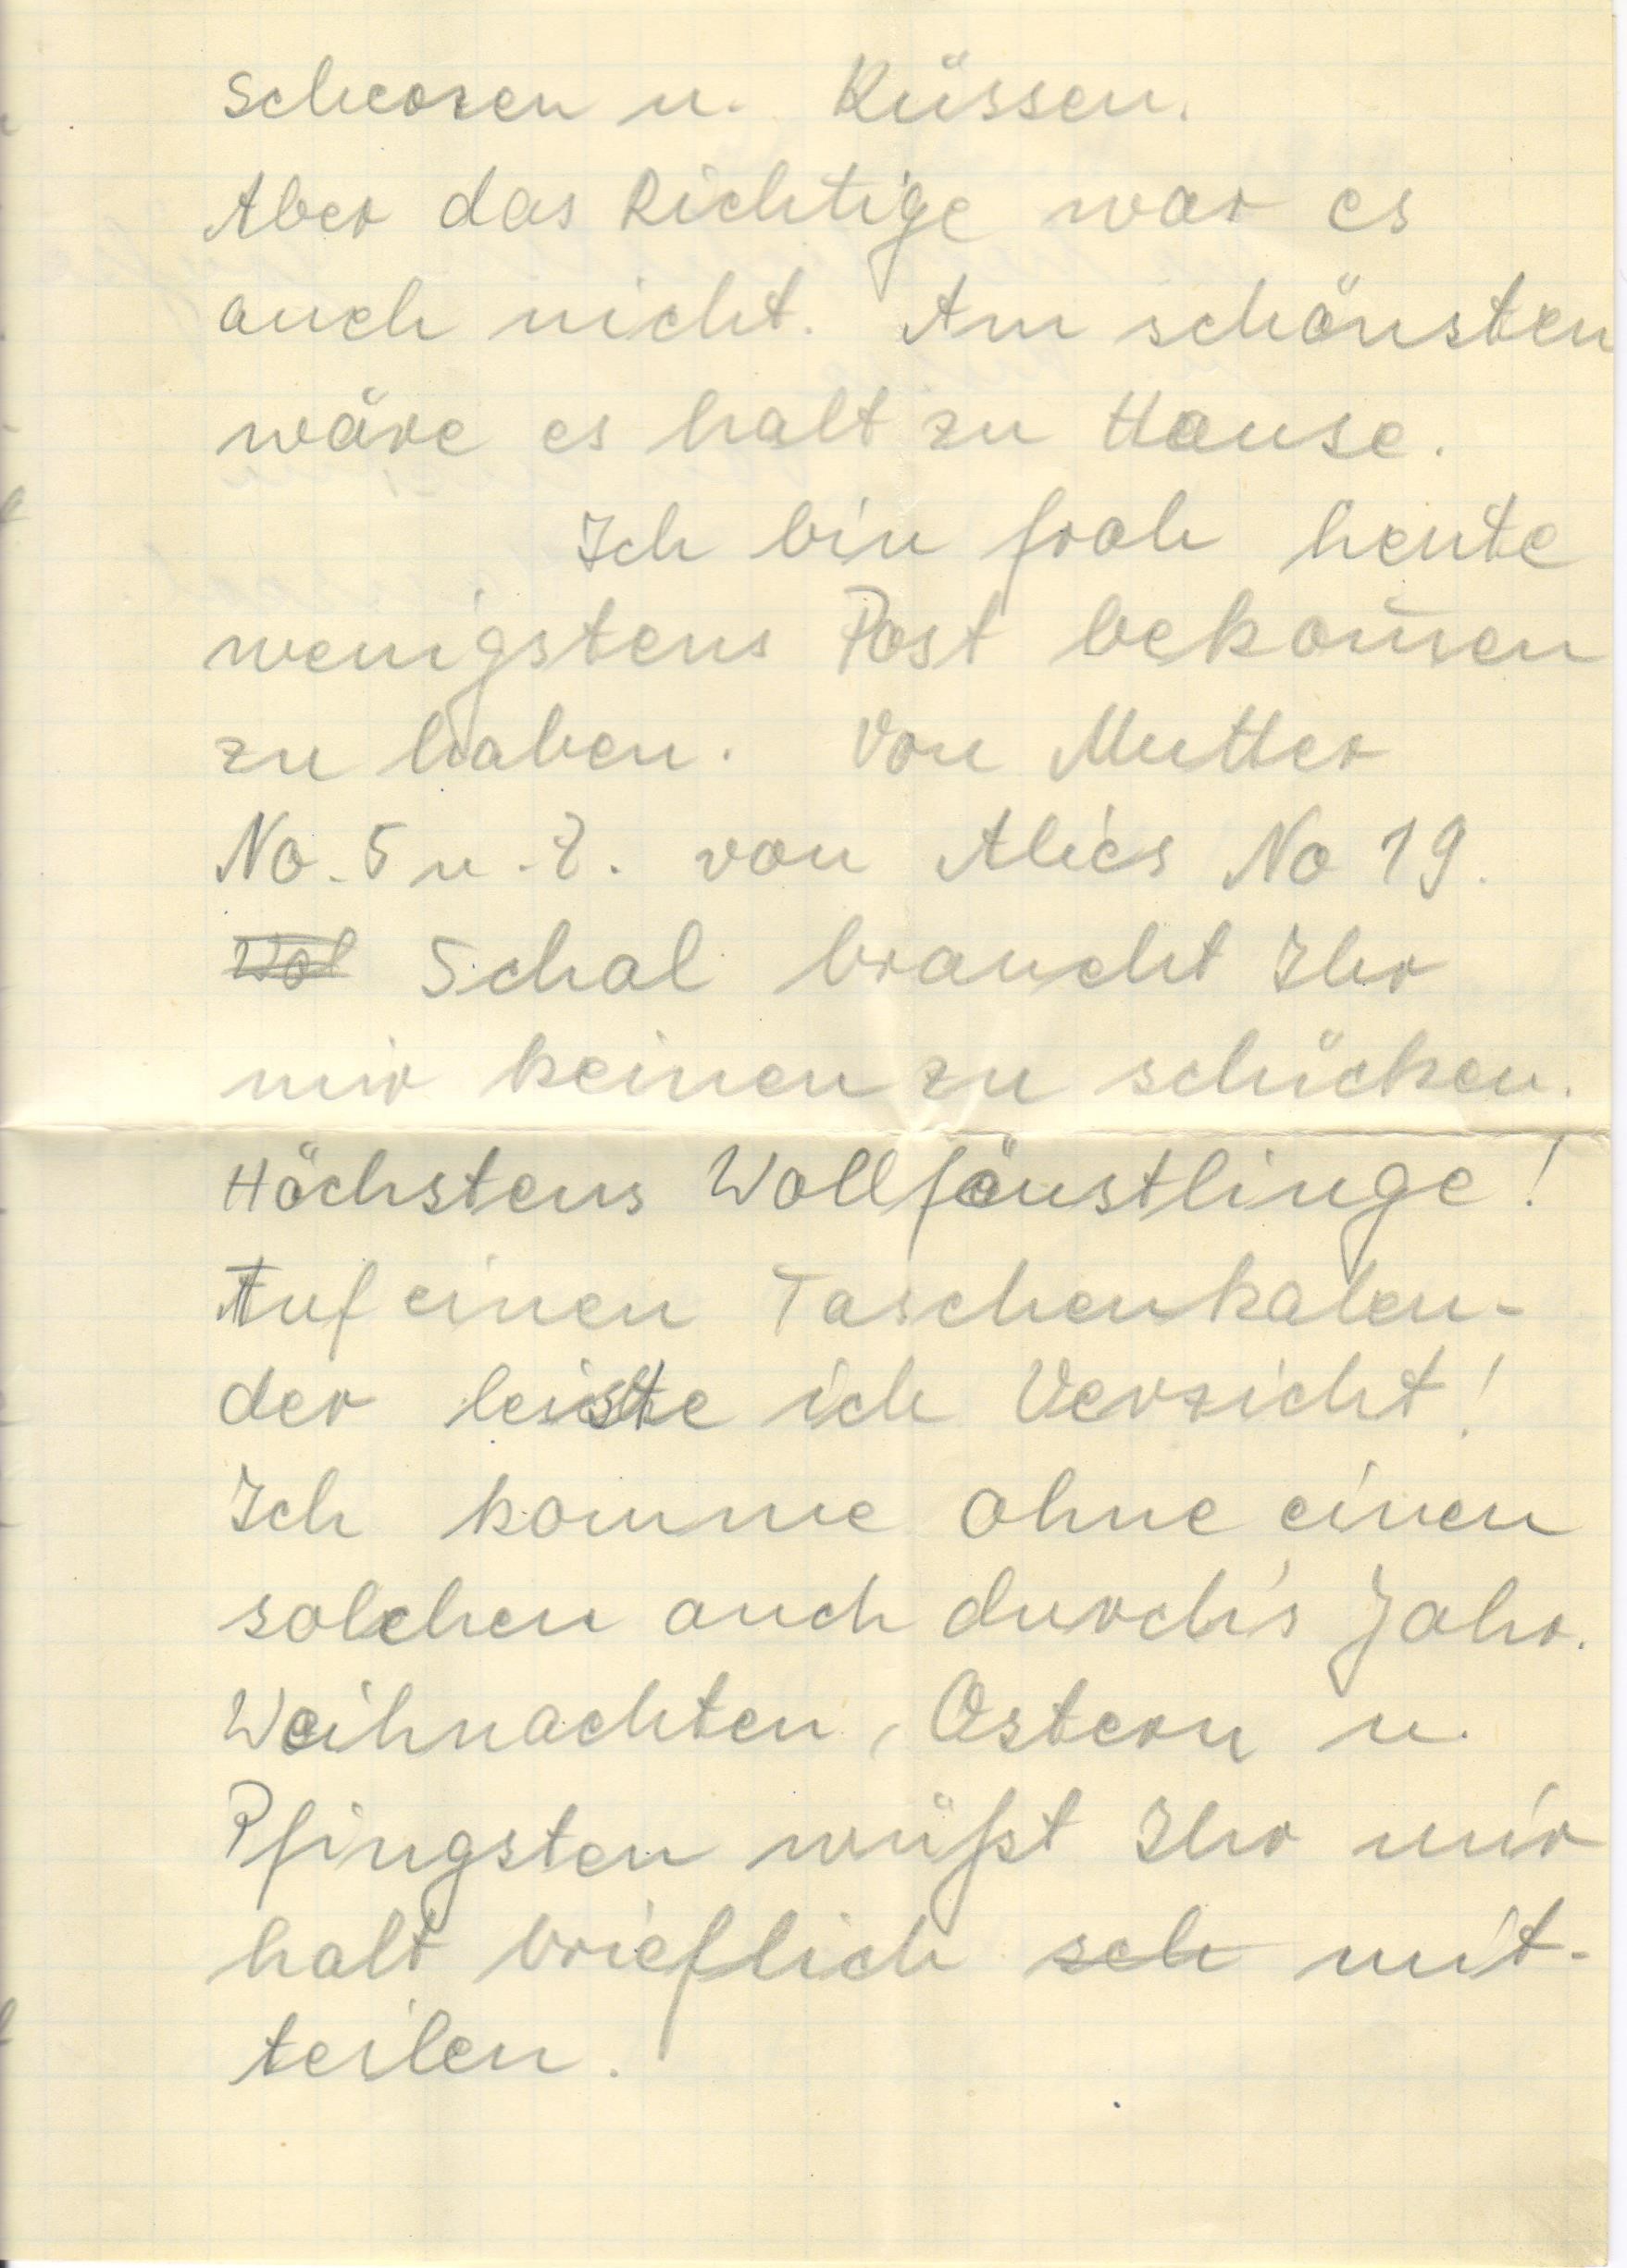 Scherzen u. Küssen.
Aber das Richtige war es
auch nicht. Am schönsten
wäre es halt zu Hause.
Ich bin froh heute
wenigstens Post bekom̄en
zu haben. Von Mutter
No. 5 u. 8. von Alies No 19.
Wol Schal braucht Ihr
mir keinen zu schicken.
Höchstens Wollfäustlinge!
Auf einen Taschenkalen-
der leiste ich Verzicht!
Ich komme ohne einen
solchen auch durch's Jahr.
Weihnachten, Ostern u.
Pfingsten müßt Ihr mir
halt brieflich sch mit-
teilen.